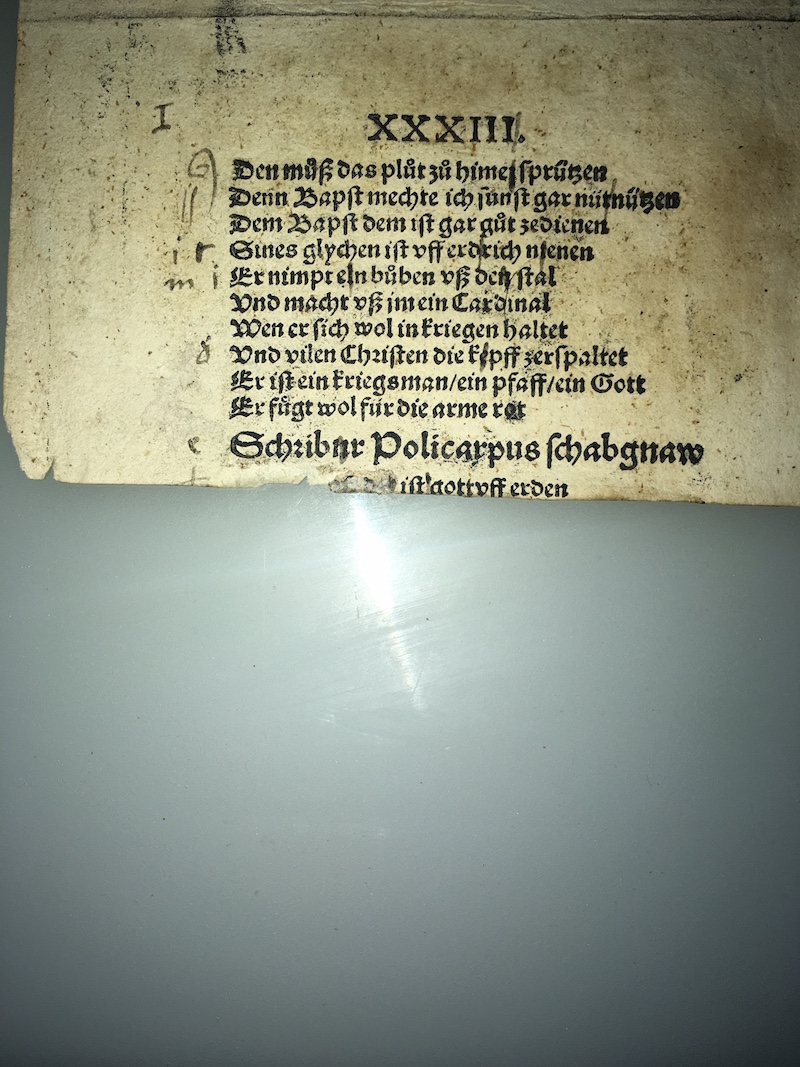 I
XXXIII.
Den muͦß das pluͦt zuͦ himel sprützen
Denn Bapst mechte ich sunst gar nüt nützen
Dem Bapst dem ist gar guͦt zedienen
Sines glychen ist vff erdrich nienen
Er nimpt ein buͦben vß dem stal
Vnd macht vß jm ein Cardinal
Wen er sich wol in kriegen haltet
Vnd vilen Christen die köpff zerspaltet
Er ist ein kriegsman/ein pfaff/ein Gott
Er fuͤgt wol für die arme rot
Schribar Policarpus schabgnaw
ist gott vff erden